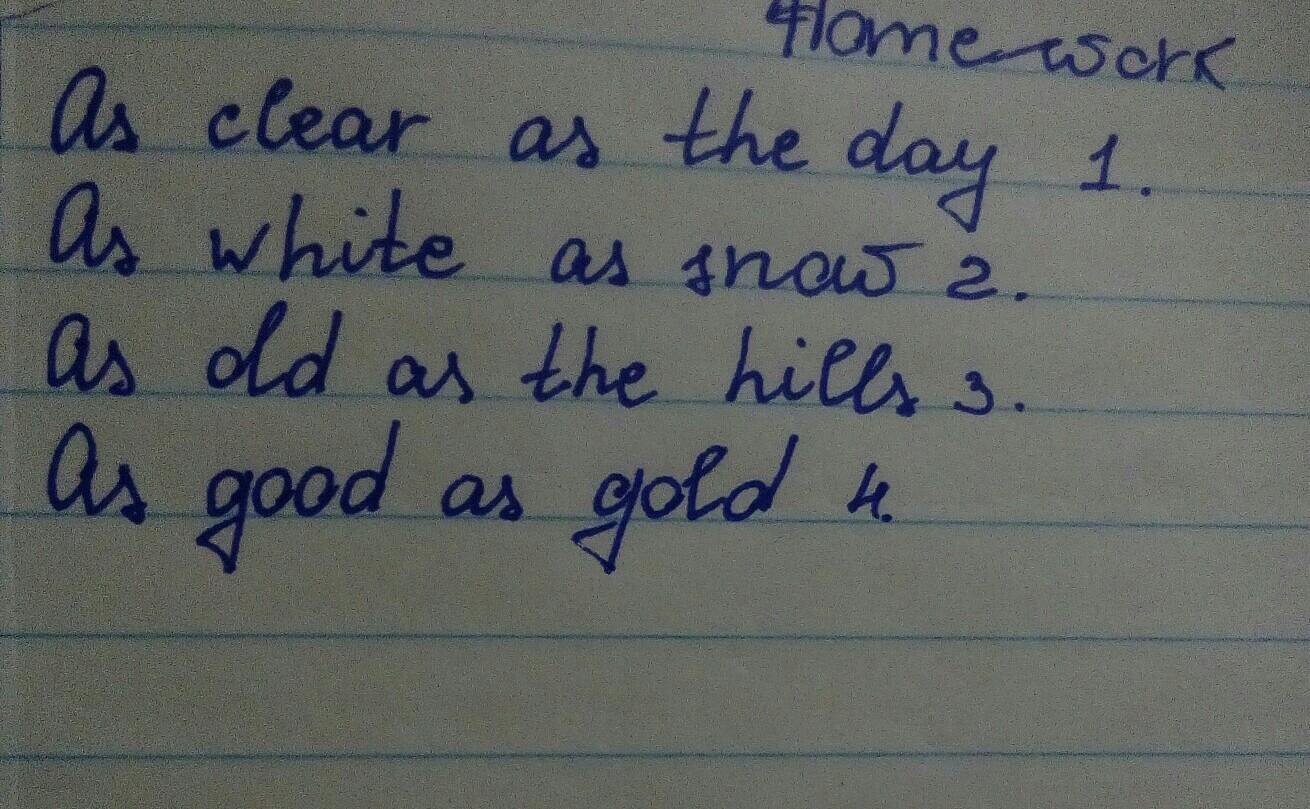 Homework
As clear as the day 1.
As white as snow 2.
As old as the hills 3.
As good as gold 4.